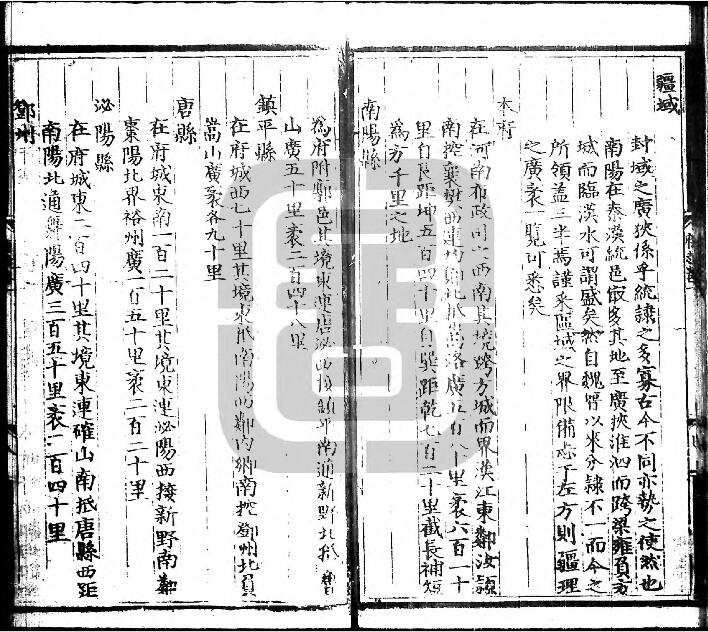 疆域
封域之廣狹係乎統隷之多寡古今不同亦勢之使然也
南陽在秦漢統邑最多其地至廣挾淮泗而跨梁雍負方
城而臨漢水可謂盛矣然自魏晉以來分隷不一而今之
所領盖三十焉謹采區域之界限備志于左方則疆理
之廣袤一覽可悉矣
本府
在河南布政司之西南其境跨方城而界漢江東鄰汝潁
南控襄樊西連均鄖北抵嵩洛廣五百八十里袤六百一十
里自艮距坤五百四十里自巽距乾七百二十里截長補短
爲方千里之地
南陽縣
爲府附郭邑其境東連唐泌西接鎮平南通新野北抵
山廣五十里袤二百四十八里
鎮平縣
在府城西七十里其境東抵南陽西鄰内鄉南控鄧州北負
嵩山廣袤各九十里
唐縣
在府城東南一百二十里其境東連泌陽西接新野南鄰
棗陽北界裕州廣一百五十里袤一百二十里
泌陽縣
在府城東二百四十里其境東連確山南抵唐縣西距
南陽北通舞陽廣三百五十里袤二百四十里
鄧州